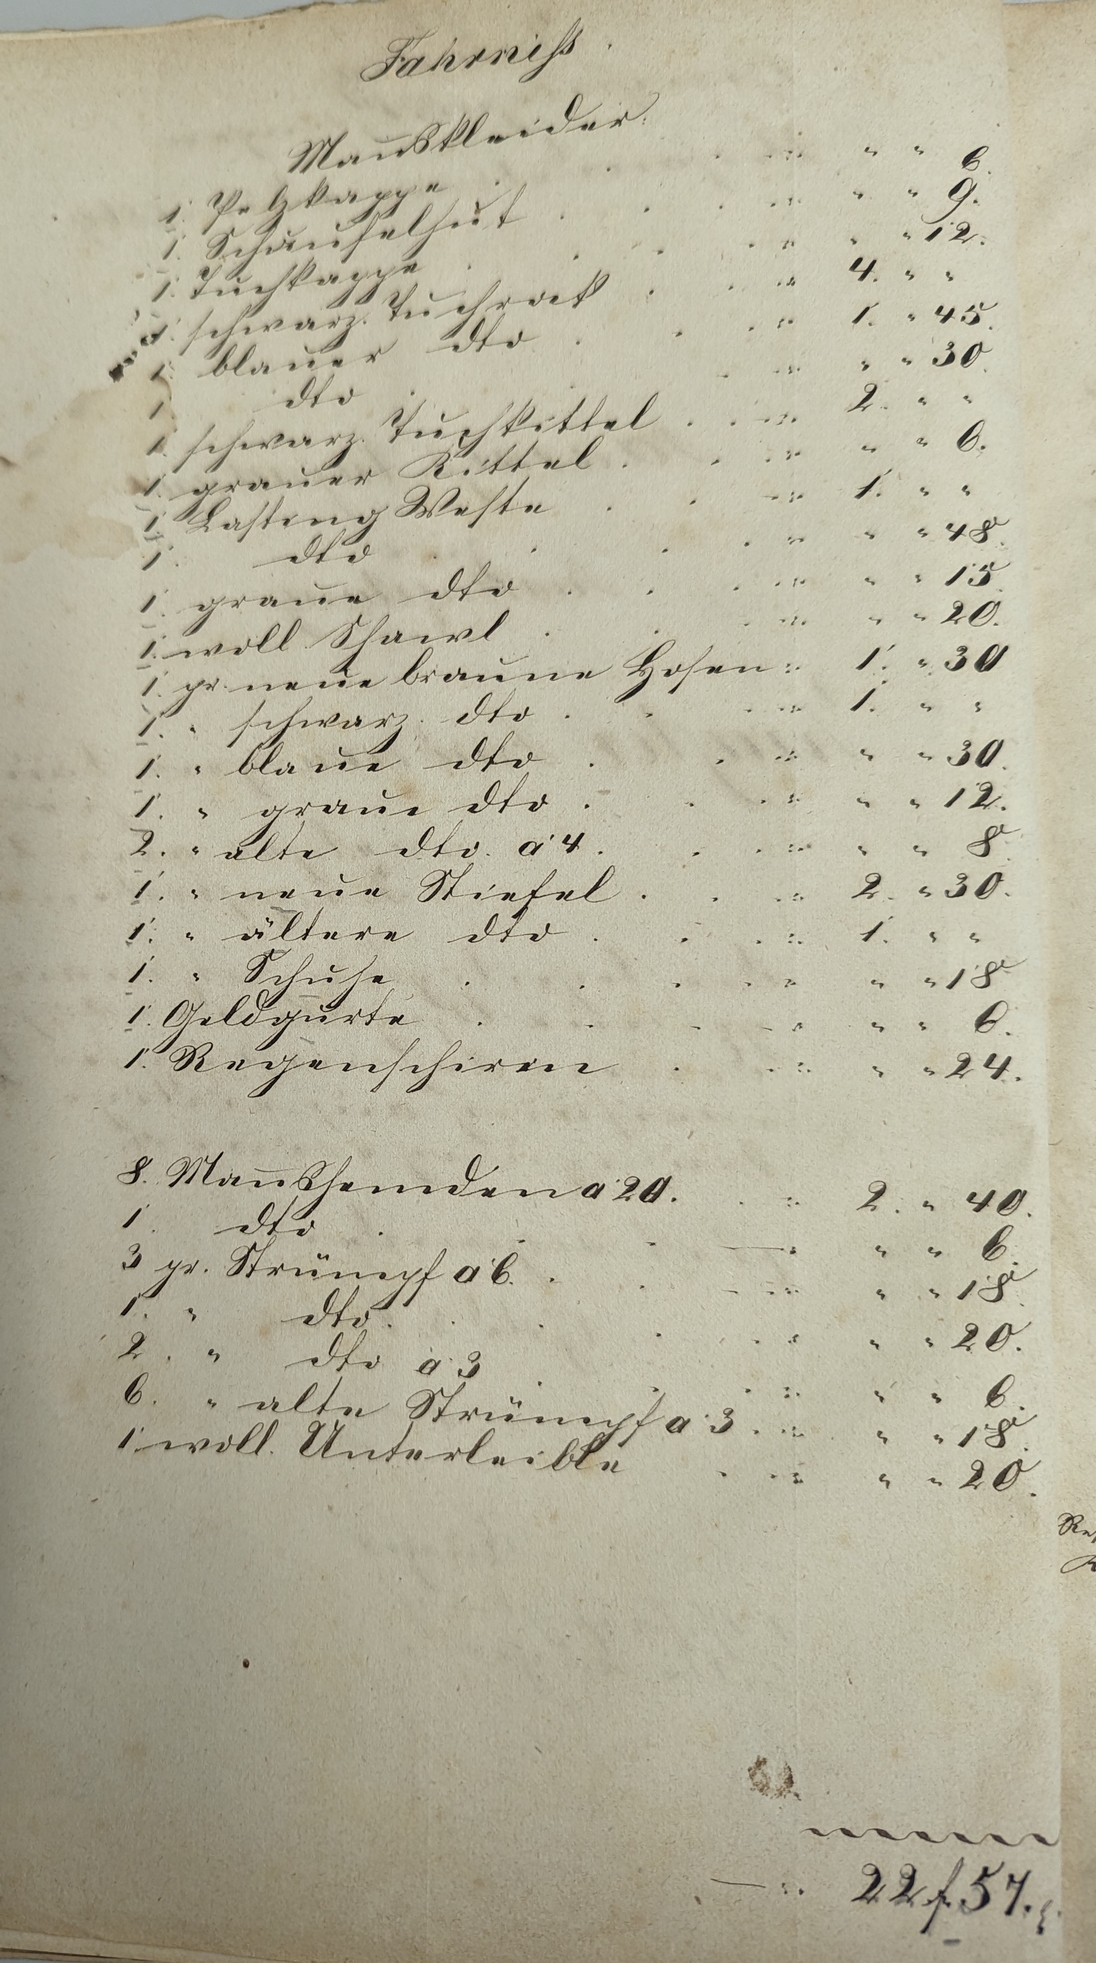 Fahrniss.
Mannskleider.
1. Pelzkappe . . . " " 6.
1. Schaufelhut . . . " " 9.
1. Tuchkappe . . . " " 12.
1. schwarz. Tuchrock . . . 4. " "
1. blauer dto . . . 1. " 45.
1 dto . . . " " 30.
1. schwarz. Tuchkittel . . . 2. " "
1. grauer Kittel . . . " " 6.
1. Lasteng Weste . . . 1. " "
1. dto . . . " " 48.
1. graue dto . . . " " 15
1. woll Shawl . . . " " 20.
1. pr. neue braune Hosen 1. " 30
1. " schwarz. dto . . . 1. " "
1. " blaue dto . . . " " 30.
1. " graue dto . . . " " 12.
2. " alte dto. a 4 . . . " " 8
1. " neue Stiefel . . . 2. " 30.
1. " ältere dto . . . 1. " "
1. " Schuhe . . . " " 18
1. Geldgurte . . . " " 6.
1. Regenschirm . . . " " 24.
8. Mannshemden a 20. . . 2. " 40.
1. dto . . . " " 6.
3 pr. Strümpf a 6. . . . " " 18.
1. " dto. . . . " " 20.
2. " dto a 3 . . . " " 6.
6. " alte Strümpf a 3 . . . " " 18.
1 woll. Unterleible . . . " " 20.
22 f. 57.